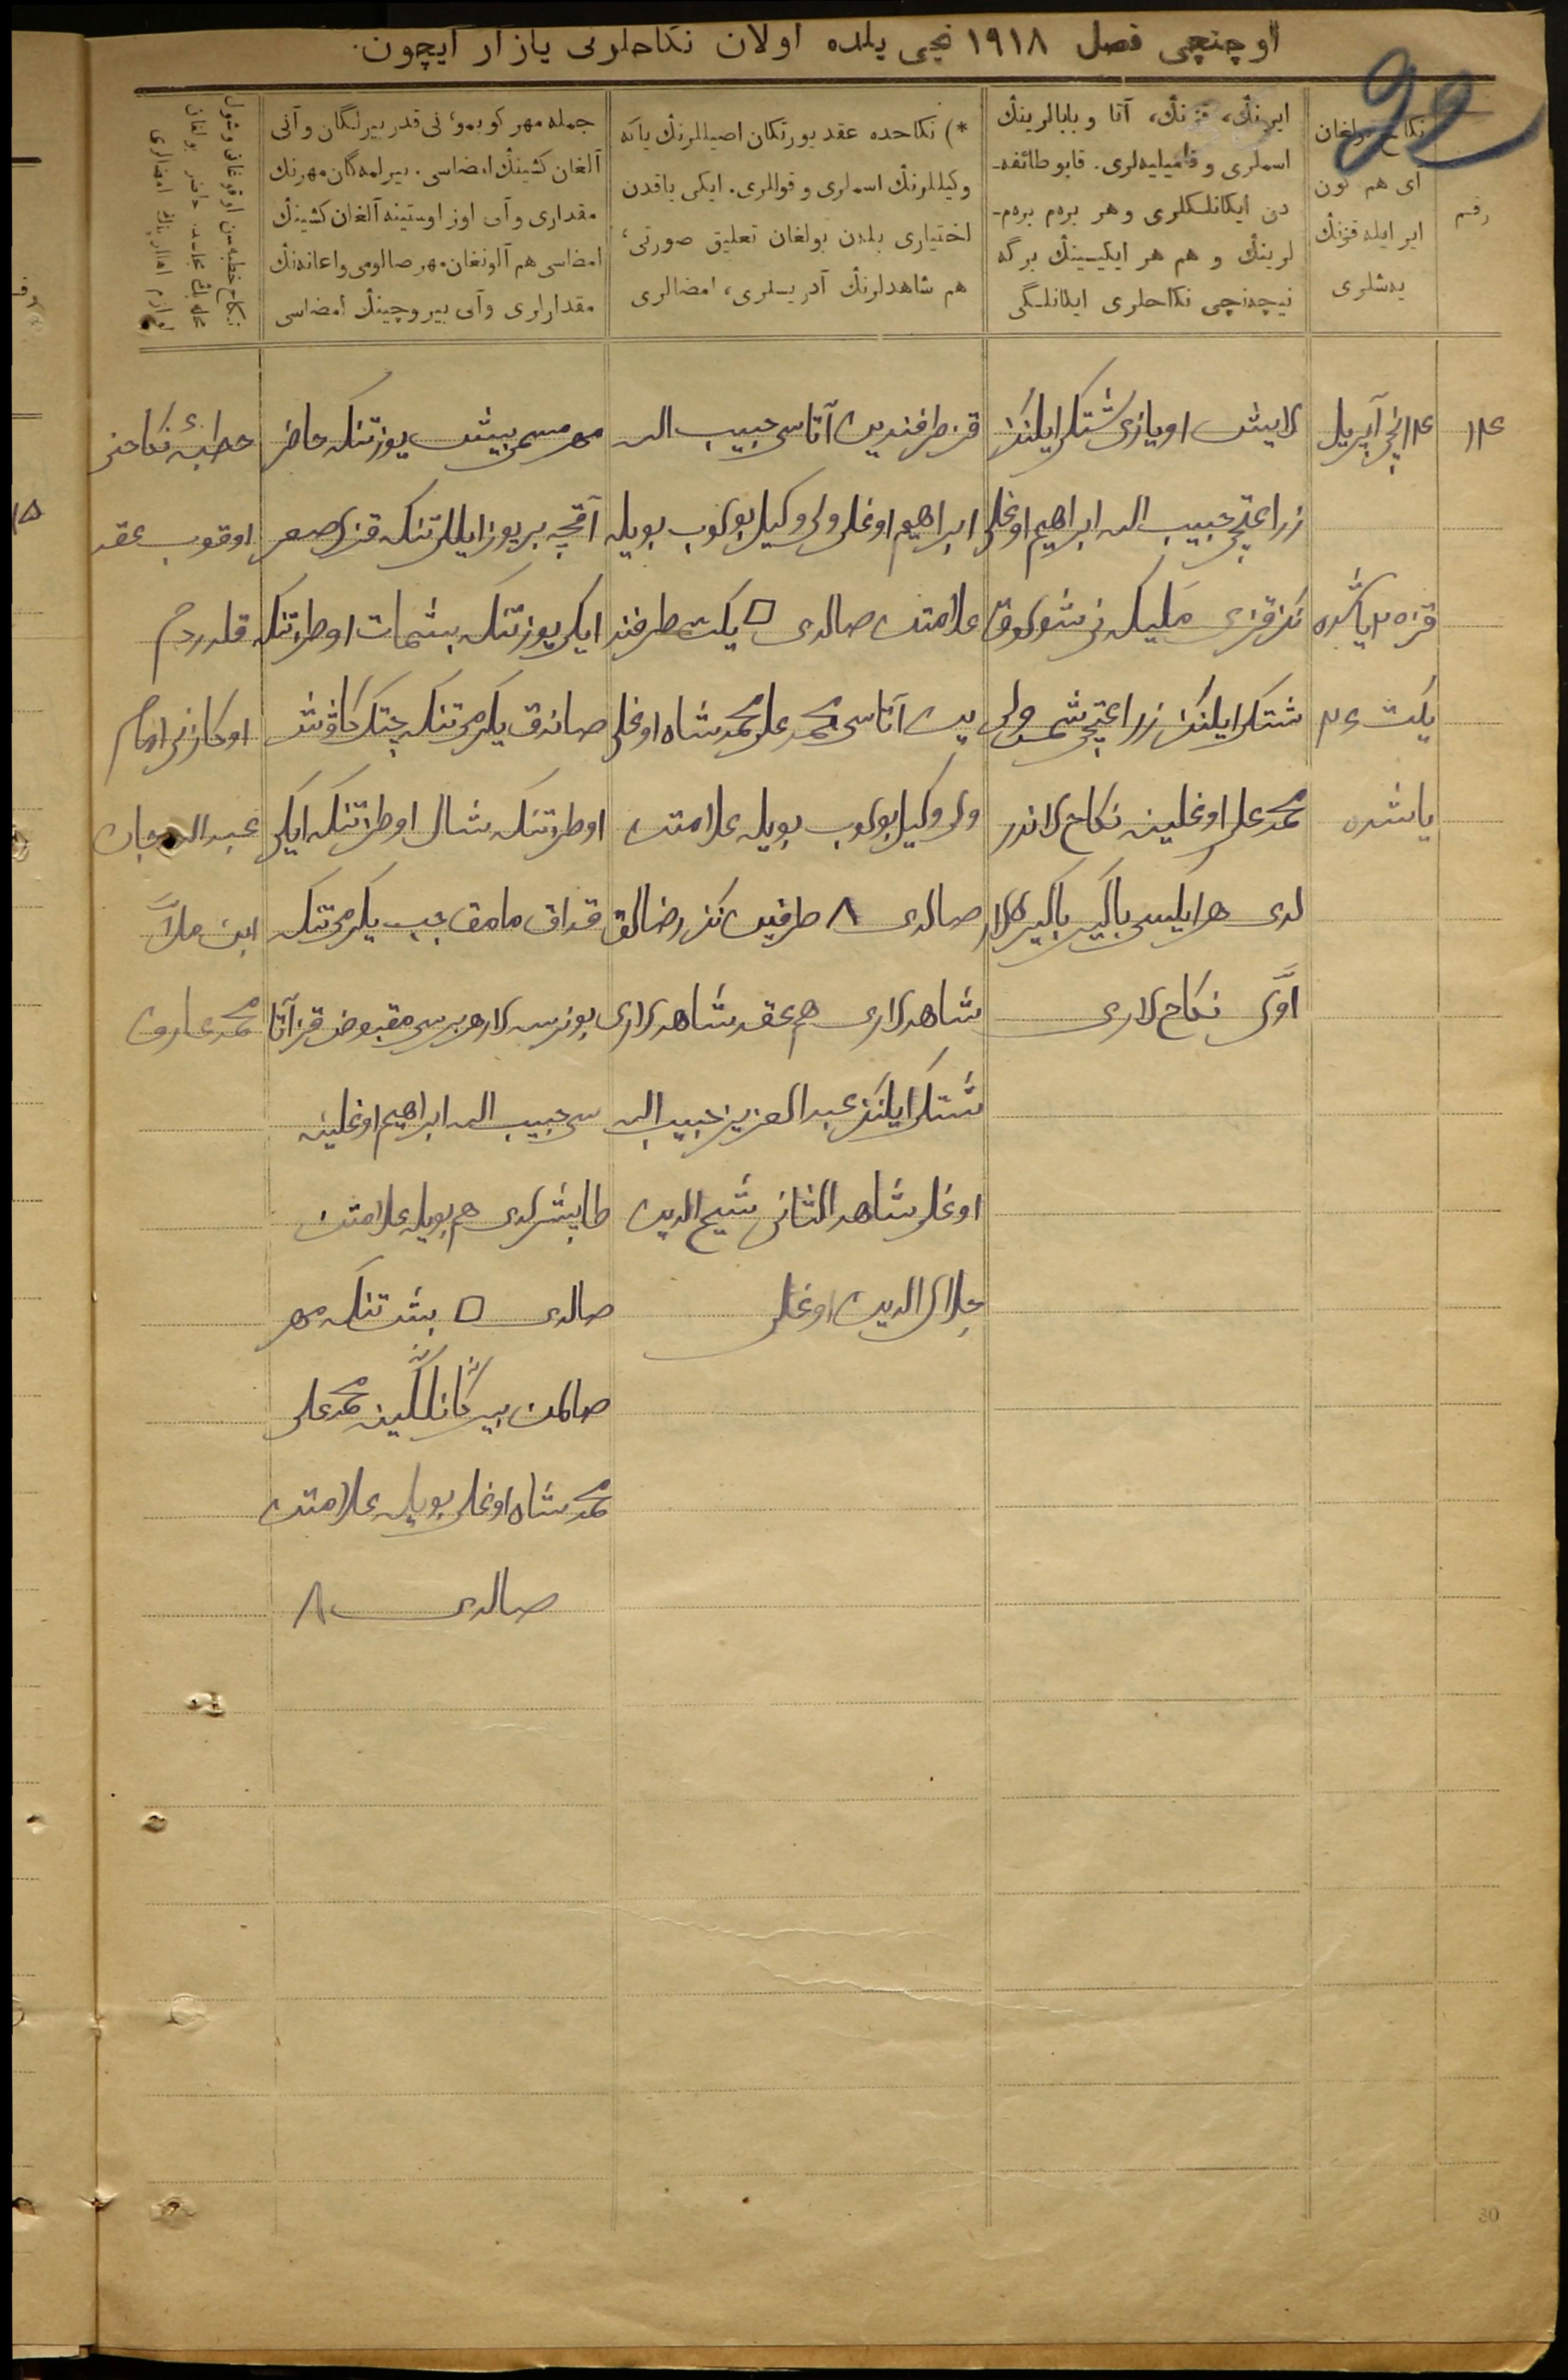 اوچنچی فصل ۱۹۱۸ نچی یلده اولان نکاحلرنی یازار ایچون.
92
رقم
نکاح بولغان
ای هم کون
ایر ایله قزنڭ
یەشلری
ایرنڭ، قزنڭ، آتا وبابالرینڭ
اسملری و فامیلیەلری. قایو طائفه-
دن ایکانلکلری وهر برەم برەم-
لرینڭ و هم هر ایکیسینڭ برگە
نیچەنچی نکاحلری ایکانلگی
*) نکاحده عقد یورتکان اصیللرنڭ یاکە
وکیللرنڭ اسملری وقوللری. ایکی یاقدن
اختیاری بلەن بولغان تعلیق صورتی،
هم شاهدلرنڭ آدریسلری، امضالری
جمله مهر کوبمو، نی قدر بیرلگان وآنی
آلغان کشینڭ امضاسی. بیرلمەگان مهرنڭ
مقداری وآنی اوز اوستینه آلغان کشینڭ
امضاسی هم آلونغان مهر صالومی واعانەنڭ
مقدارلری وآنی بیروچینڭ امضاسی
نکاح خطبەسن اوقوغان وشول
۱٤
۱٤نچی آپریل
قز ۲۵ یاشده
یکت ۲٤
یاشده
لایش اویازی شتکی ایلینڭ
زراعتچی حبیب الله ابراهیم اوغلی
نڭ قزی ملیکه نی شولوق
شتکی ایلینڭ زراعتچی شمس ولی
محمد علی اوغلینه نکاحلاندر
لدی هر ایکیسی باکیر باکیرەلار
اوّل نکاحلاری
قز طرفندین آتاسی حبیب الله
ابراهیم اوغلی ولی وکیل بولوب بویله
علامتن صالدی □ یکت طرفند
ین آتاسی محمد علی محمد شاه اوغلی
ولی وکیل بولوب بویله علامتن
صالدی ۸ طرفین نڭ رضالق
شاهدلاری هم عقد شاهدلاری
شتکی ایلینڭ عبد العزیز حبیب الله
اوغلی شاهد الثانی شیخ الدین
جلال الدین اوغلی
مهر مسمی بیش یوز تنکه حاضر
آقچه بر یوز ایللی تنکه قزل صعر
ایکی یوز تنکه بیشمات اوطز تنکه
صاندق یکرمی تنکه چتک کاوش
اوطز تنکه شال اوطز تنکه ایکی
قداق مامق جب یکرمی تنکه
بو نرسەلار هر برسی مقبوض قز آتا
سی حبیب الله ابراهیم اوغلینه
طابشرلدی هم بویله علامتن
صالدی □ بش تنکه مهر
صالمن بیرگانلگینه محمد علی
محمد شاه اوغلی بویله علامتن
صالدی ۸
خطبۀ نکاحنی
اوقوب عقد
قلدردم
اوکازنی امام
عبد الله جان
ابن ملّا
محمد عارف
۱۵
30